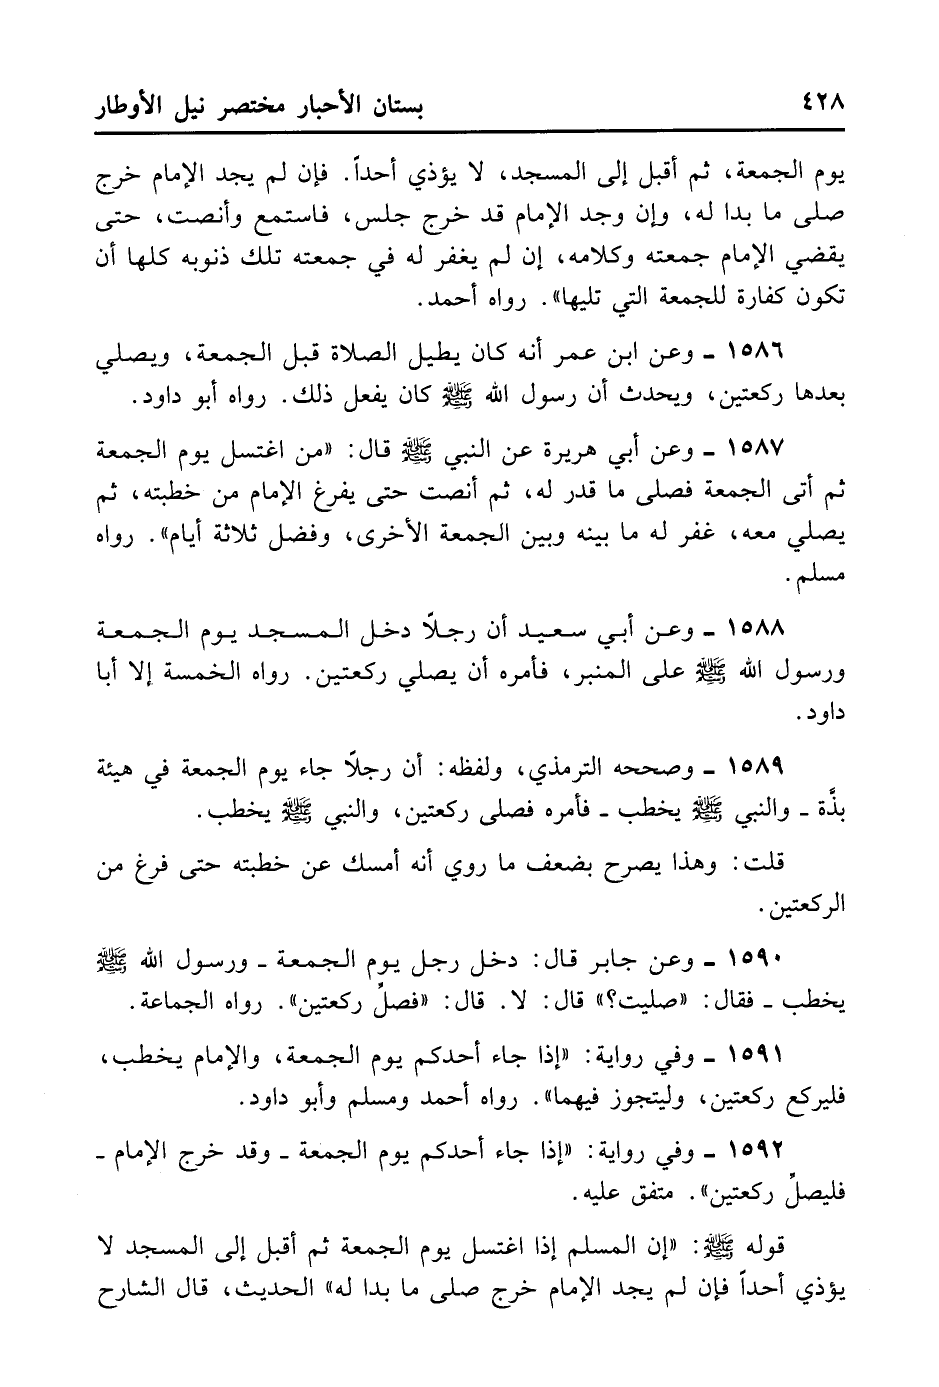 ٤٢٨ بستان الأحبار مختصر نيل الأوطار
يوم الجمعة، ثم أقبل إلى المسجد، لا يؤذي أحداً. فإن لم يجد الإمام خرج
صلى ما بدا له، وإن وجد الإمام قد خرج جلس، فاستمع وأنصت، حتى
يقضي الإمام جمعته وكلامه، إن لم يغفر له في جمعته تلك ذنوبه كلها أن
تكون كفارة للجمعة التي تليها». رواه أحمد.
١٥٨٦ ـ وعن ابن عمر أنه كان يطيل الصلاة قبل الجمعة، ويصلي
بعدها ركعتين، ويحدث أن رسول الله ﷺ كان يفعل ذلك. رواه أبو داود.
١٥٨٧ ـ وعن أبي هريرة عن النبي ﷺ قال: «من اغتسل يوم الجمعة
ثم أتى الجمعة فصلى ما قدر له، ثم أنصت حتى يفرغ الإمام من خطبته، ثم
يصلي معه، غفر له ما بينه وبين الجمعة الأخرى، وفضل ثلاثة أيام». رواه
مسلم.
١٥٨٨ ـ وعن أبي سعيد أن رجلاً دخل المسجد يوم الجمعة
ورسول الله ﷺ على المنبر، فأمره أن يصلي ركعتين. رواه الخمسة إلا أبا
داود.
١٥٨٩ ـ وصححه الترمذي، ولفظه: أن رجلاً جاء يوم الجمعة في هيئة
بذَّة ـ والنبي ﷺ يخطب ـ فأمره فصلى ركعتين، والنبي ﷺ يخطب.
قلت: وهذا يصرح بضعف ما روي أنه أمسك عن خطبته حتى فرغ من
الركعتين.
١٥٩٠ ـ وعن جابر قال: دخل رجل يوم الجمعة ـ ورسول الله ﷺ
يخطب ـ فقال: «صليت؟» قال: لا. قال: «فصلِّ ركعتين». رواه الجماعة.
١٥٩١ ـ وفي رواية: «إذا جاء أحدكم يوم الجمعة، والإمام يخطب،
فليركع ركعتين، وليتجوز فيهما». رواه أحمد ومسلم وأبو داود.
١٥٩٢ ـ وفي رواية: «إذا جاء أحدكم يوم الجمعة ـ وقد خرج الإمام ـ
فليصلِّ ركعتين». متفق عليه.
قوله ﷺ: «إن المسلم إذا اغتسل يوم الجمعة ثم أقبل إلى المسجد لا
يؤذي أحداً فإن لم يجد الإمام خرج صلى ما بدا له» الحديث، قال الشارح